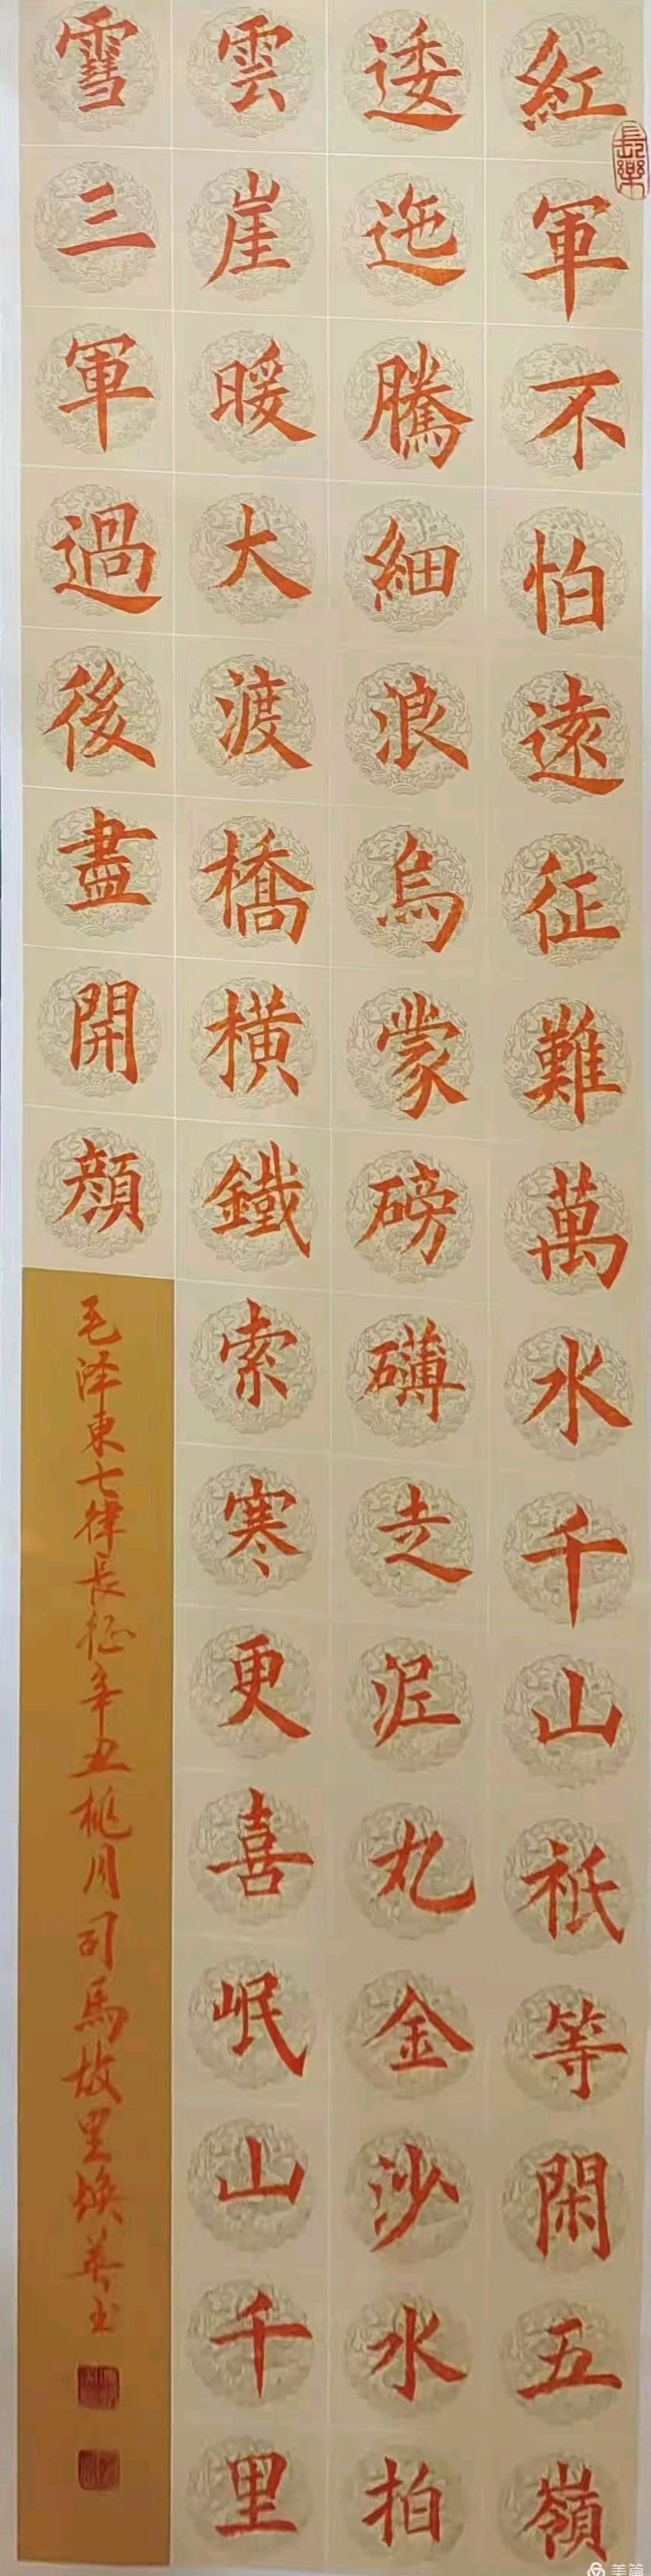 紅軍不怕遠征難萬水千山祇等閑五嶺
逶迤騰細浪烏蒙磅礴走泥丸金沙水拍
雲崖暖大渡橋橫鐵索寒更喜岷山千里
雪三軍過後盡開顏
毛泽東七律長征辛丑桃月司馬故里焕英书
長樂
美篇